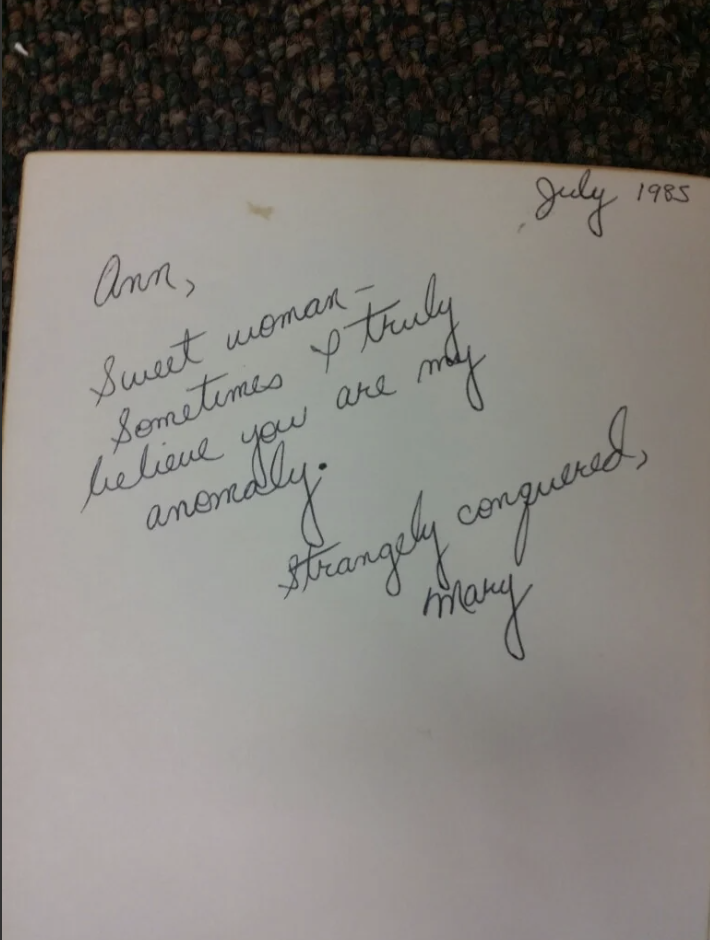 July 1985
Ann,
Sweet woman –
Sometimes I truly
believe you are my
anomaly.
Strangely conquered,
Mary